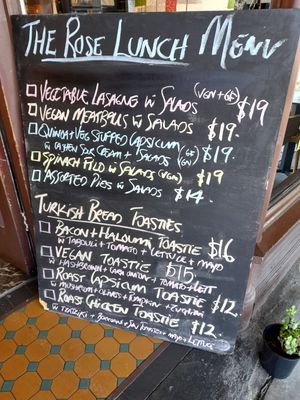 THE ROSE LUNCH MENU
VEGETABLE LASAGNE W SALADS (VGN+GF) $19
VEGAN MEATBALLS W SALADS $19.
QUINOA+VEG STUFFED CAPSICUM (GF
W CASHEW SOUR CREAM + SALADS $19.
SPINACH FILO W SALADS (VGN) $19
ASSORTED PIES W SALADS $14.
TURKISH BREAD TOASTIES
BACON+HALOUMI TOASTIE $16
W TABOULI + TOMATO + LETTUCE + MAYO
VEGAN TOASTIE $15
W HASHBROWN + + TOMATO + LETT
ROAST CAPSICUM TOASTIE $12.
W MUSHROOM + OLIVES + PUMPKIN + ZUCCHINI
ROAST CHICKEN TOASTIE $12.
W TZATZIKI + + MAYO + LETTUCE